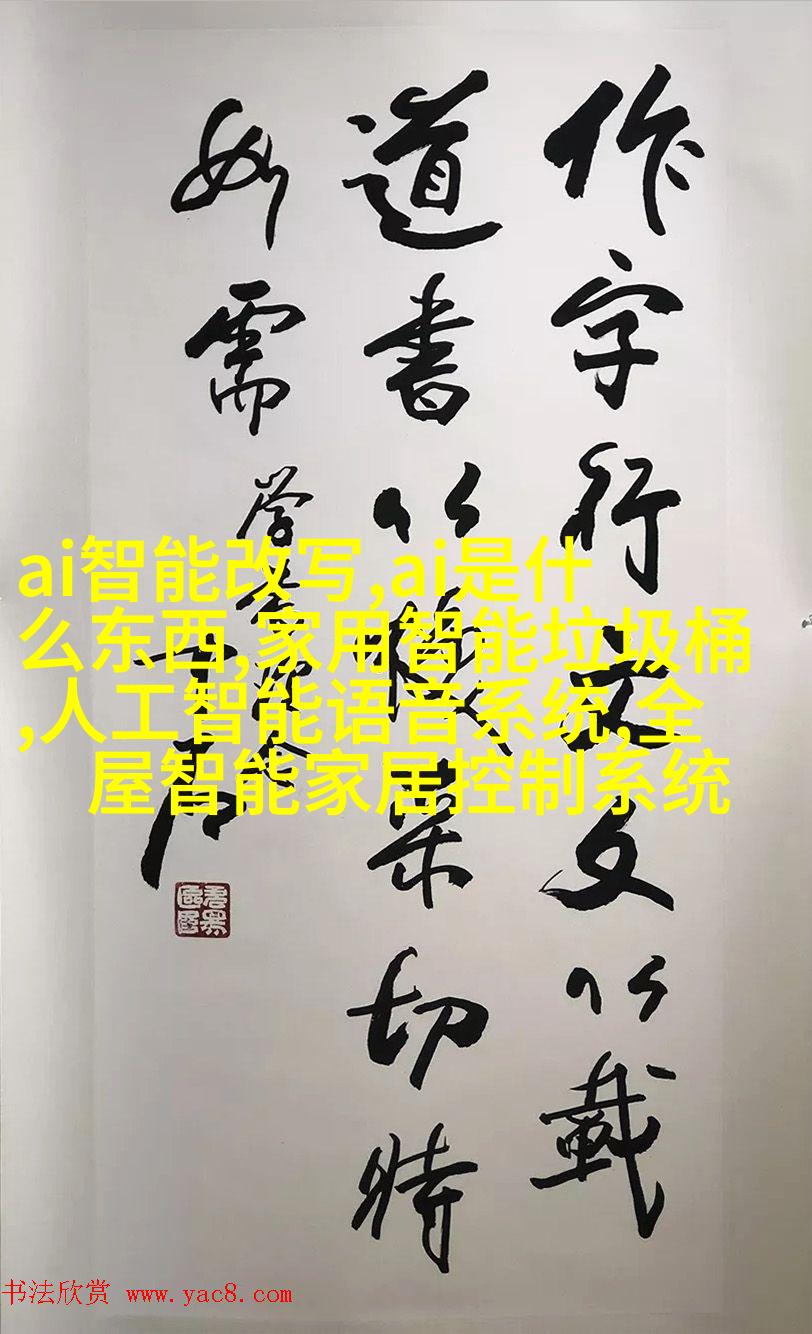 作字行文文以載
道書以采切時
如需
ai智能改写,ai是什
么东西,家用智能垃圾桶
,人工智能语音系统,全
屋智能家居控制系统
书法欣赏 www.yac8.com